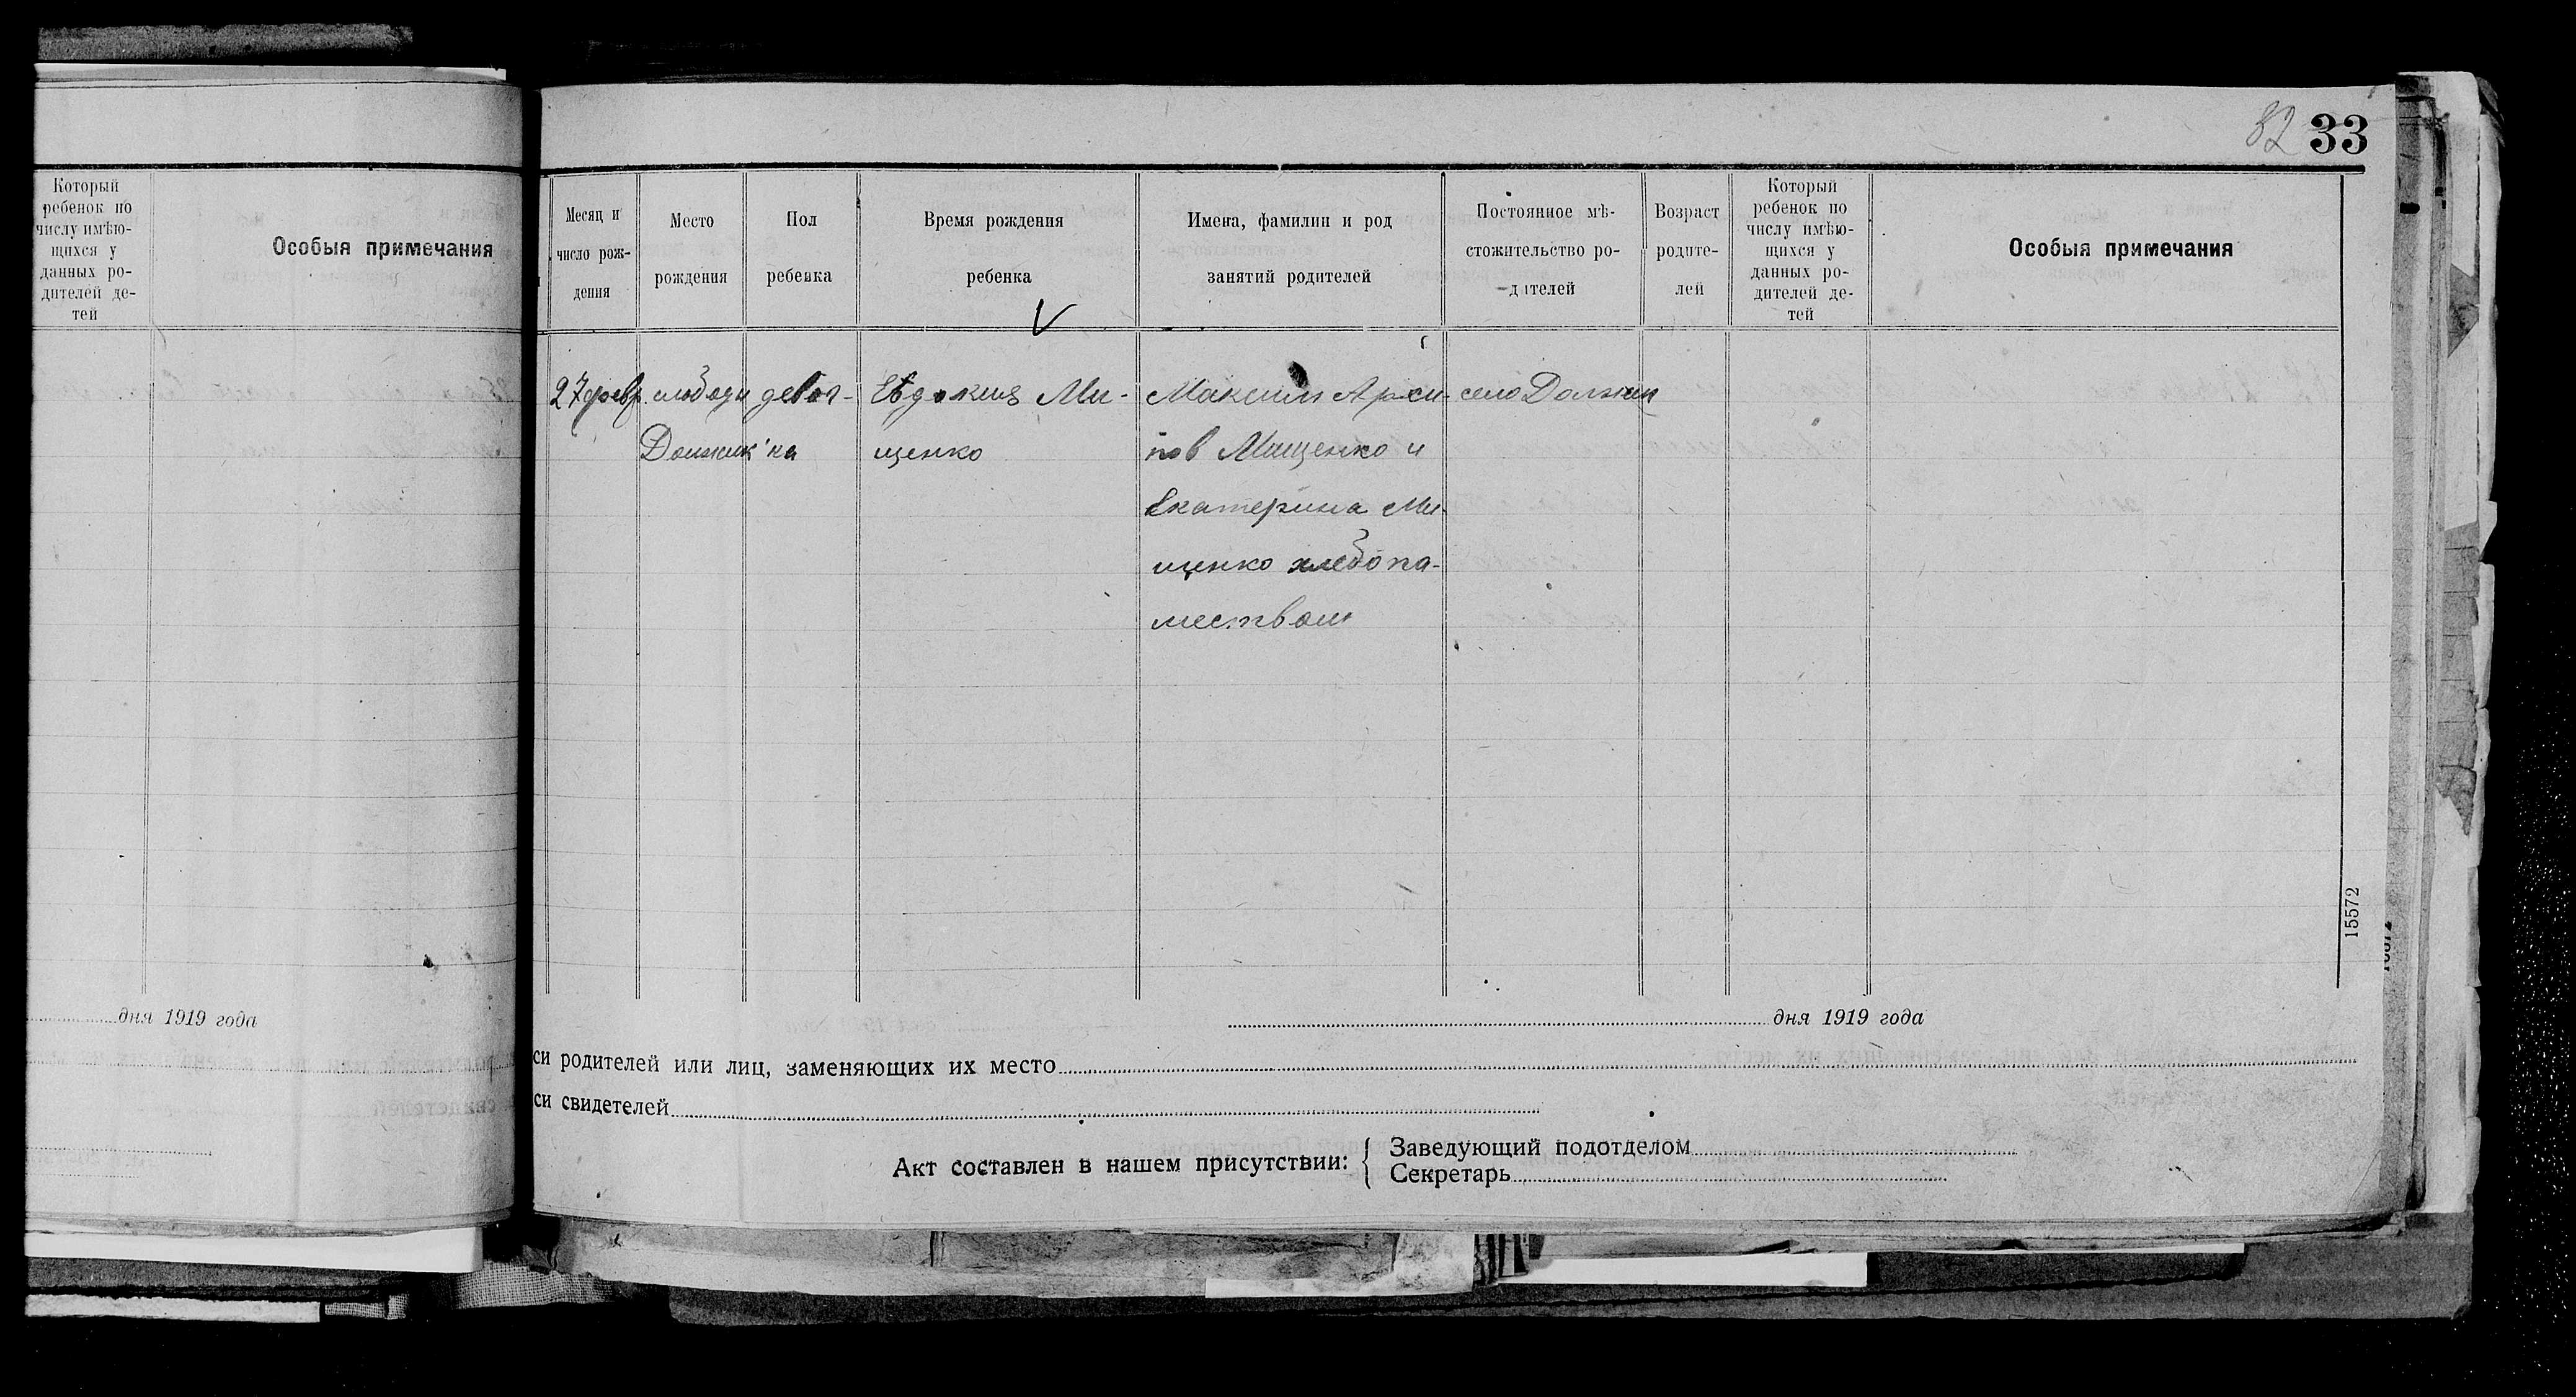 Который
ребенок по
числу имѣю-
щихся у
данных ро-
дителей де-
тей
Особыя примечания
дня 1919 года
82 33
Месяц и
число рож-
дения
Место
рождения
Пол
ребенка
Время рождения
ребенка
Имена, фамилии и род
занятий родителей
Постоянное мѣ-
стожительство ро-
дителей
Возраст
родите-
лей
Который
ребенок по
числу имѣю-
щихся у
данных ро-
дителей де-
тей
Особыя примечания
27 февр.
слободи
Должик
девоч-
ка
Евдокия Ми-
щенко
Максим
пов Мищенко и
Екатерина Ми-
щенко хлебопа-
шеством
село Должик
15572
дня 1919 года
си родителей или лиц, заменяющих их место
си свидетелей
Акт составлен в нашем присутствии:
Заведующий подотделом
Секретарь